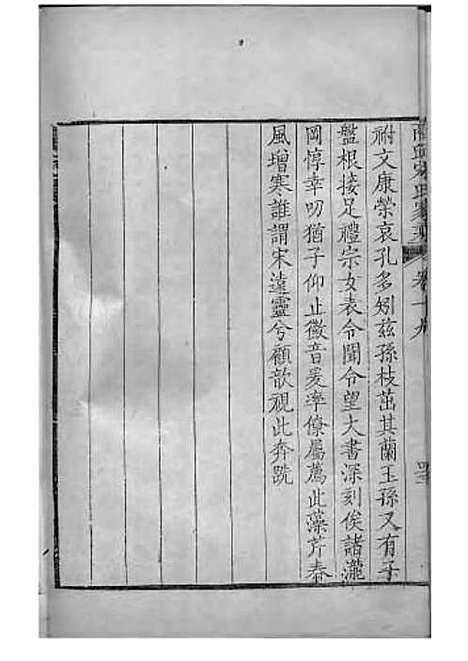 祔文康榮哀孔多矧兹孫枝茁其蘭玉孫又有子
盤根接足禮宗女表令聞令望大書深刻俟諸瀧
岡惇幸叨猶子仰止徽音爰率僚屬薦此藻芹春
風增寒誰謂宋遠靈兮顧歆視此奔跣
氏 卷十九